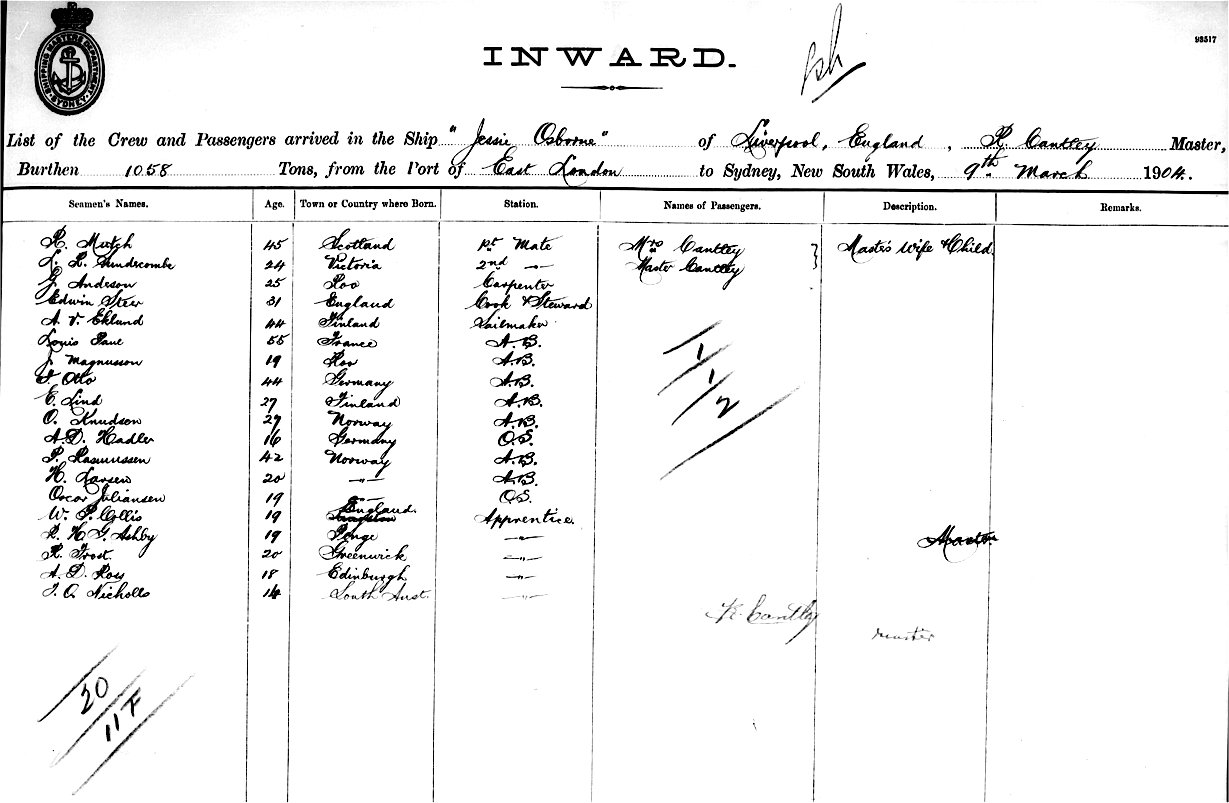 SHIPPING MASTERS DEPARTMENT SYDNEY
93517
INWARD.
List of the Crew and Passengers arrived in the Ship "Jessie Osborne" of Liverpool, England, R. Cantley Master,
Burthen 1058 Tons, from the Port of East London to Sydney, New South Wales, 9th March 1904.
Seamen's Names. Age. Town or Country where Born. Station. Names of Passengers. Description. Remarks.
R. Mutch 45 Scotland 1st Mate Mrs Cantley } Master's Wife & Child
L. R. 24 Victoria 2nd —"— Master Cantley
J. Anderson 25 Carpenter
Edwin Steer 31 England Cook & Steward
A. V. Eklund 44 Finland Sailmaker
Louis 55 France A.B.
J. Magnusson 19 A.B.
F. Otto 44 Germany A.B.
E. Lind 27 Finland A.B.
O. Knudsen 27 Norway A.B.
A. D. Hadler 16 Germany O.S.
P. Rasmussen 42 Norway A.B.
H. Larsen 20 —"— A.B.
Oscar Juliansen 19 —"— O.S.
W. P. Collis 19 England Apprentice
R. H. G. Ashby 19 Penge —"—
R. Frost 20 Greenwick —"—
A. D. Ross 18 Edinburgh —"—
J. O. Nicholls 14 South Aust. —"—
1
1
2
R. Cantley master
20
11 F